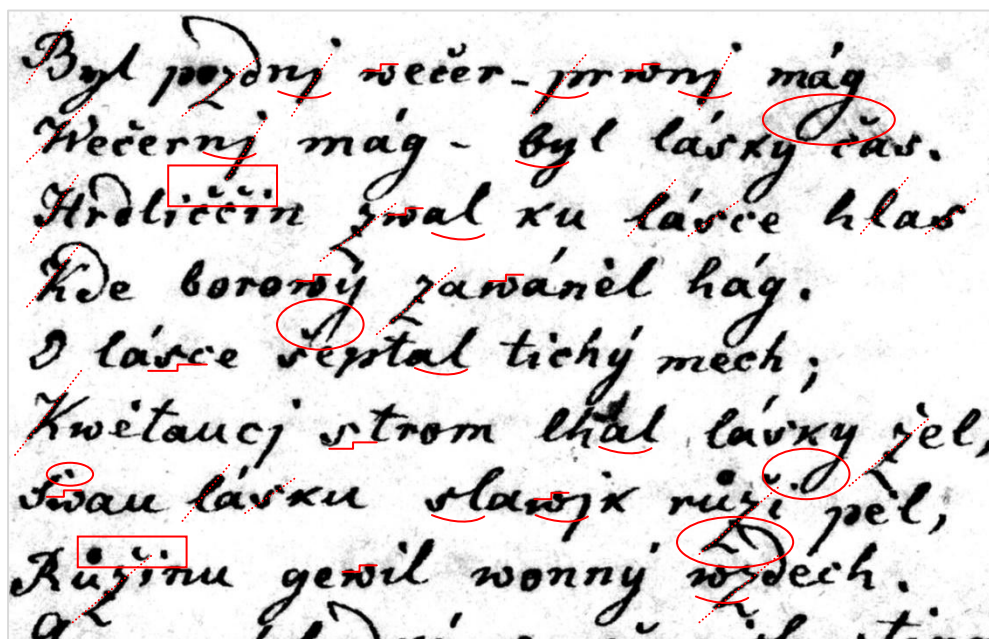 Byl pozdnj wečer – prwnj mág
Wečernj mág – byl lásky čas.
Hrdliččin zwal ku lásce hlas
Kde borowý zawáněl hág.
O lásce šeptal tichý mech;
Kwětaucj strom lhal lásky žel,
Swau lásku slawjk růži pěl,
Růžinu gewil wonný wzdech.